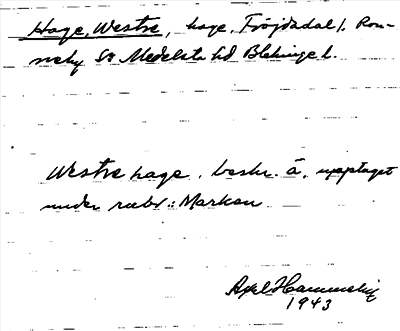 Hage, Westre, hage, Fröjdadal l. Ron-
neby Sn Medelsta hd Blekinge l.
Westre hage, beskr. å, upptaget
under rubr.: Marken
Axel Hammelig
1943